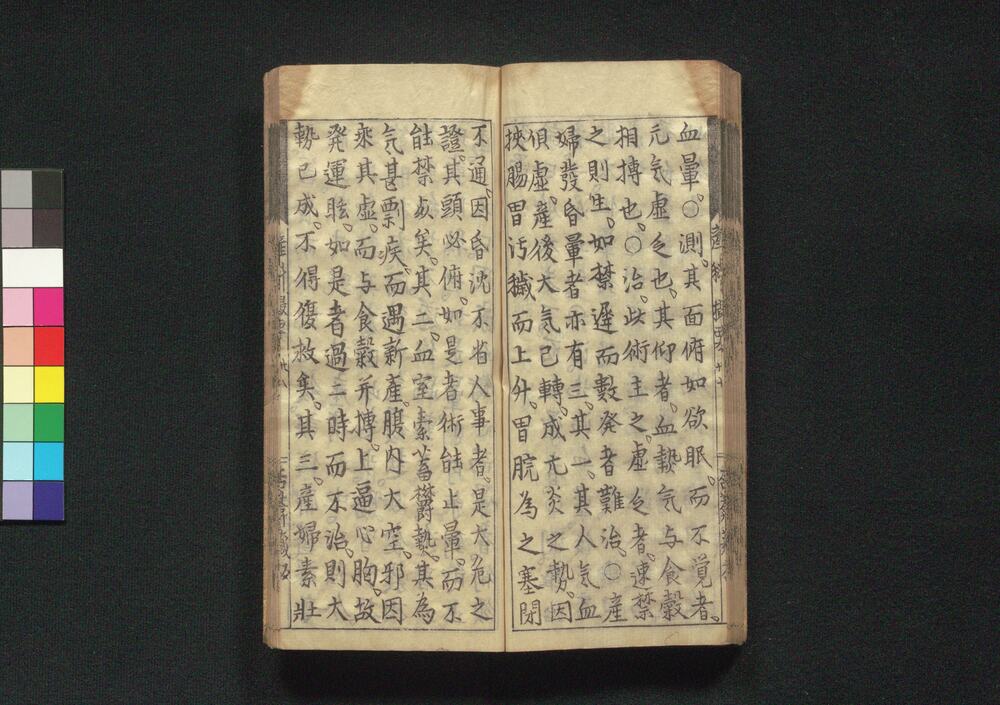 血暈。○測。其面俯如欲眠。而不覚者。
元気虚乏也。其仰者。血熱気与食穀
相摶也。○治。此術主之。虚乏者。速禁
之則生。如禁遅而数発者難治。○産
婦発昏暈者亦有三。其一。其人気血
俱虚。産後大気已轉。成亢炎之勢。因
挾腸胃汚穢而上升。胃脘為之塞閉
不通。因昏沈不省人事者。是大危之
證。其頭必俯。如是者術能止暈。而不
能禁虚矣。其二。血室素蓄欝熱。其為
気甚剽疾。而遇新産。腹内大空。邪因
乘其虚。而与食穀并摶。上逼心胸。故
発運眩。如是者過二時而不治。則大
勢已成。不得復救矣。其三。産婦素壯